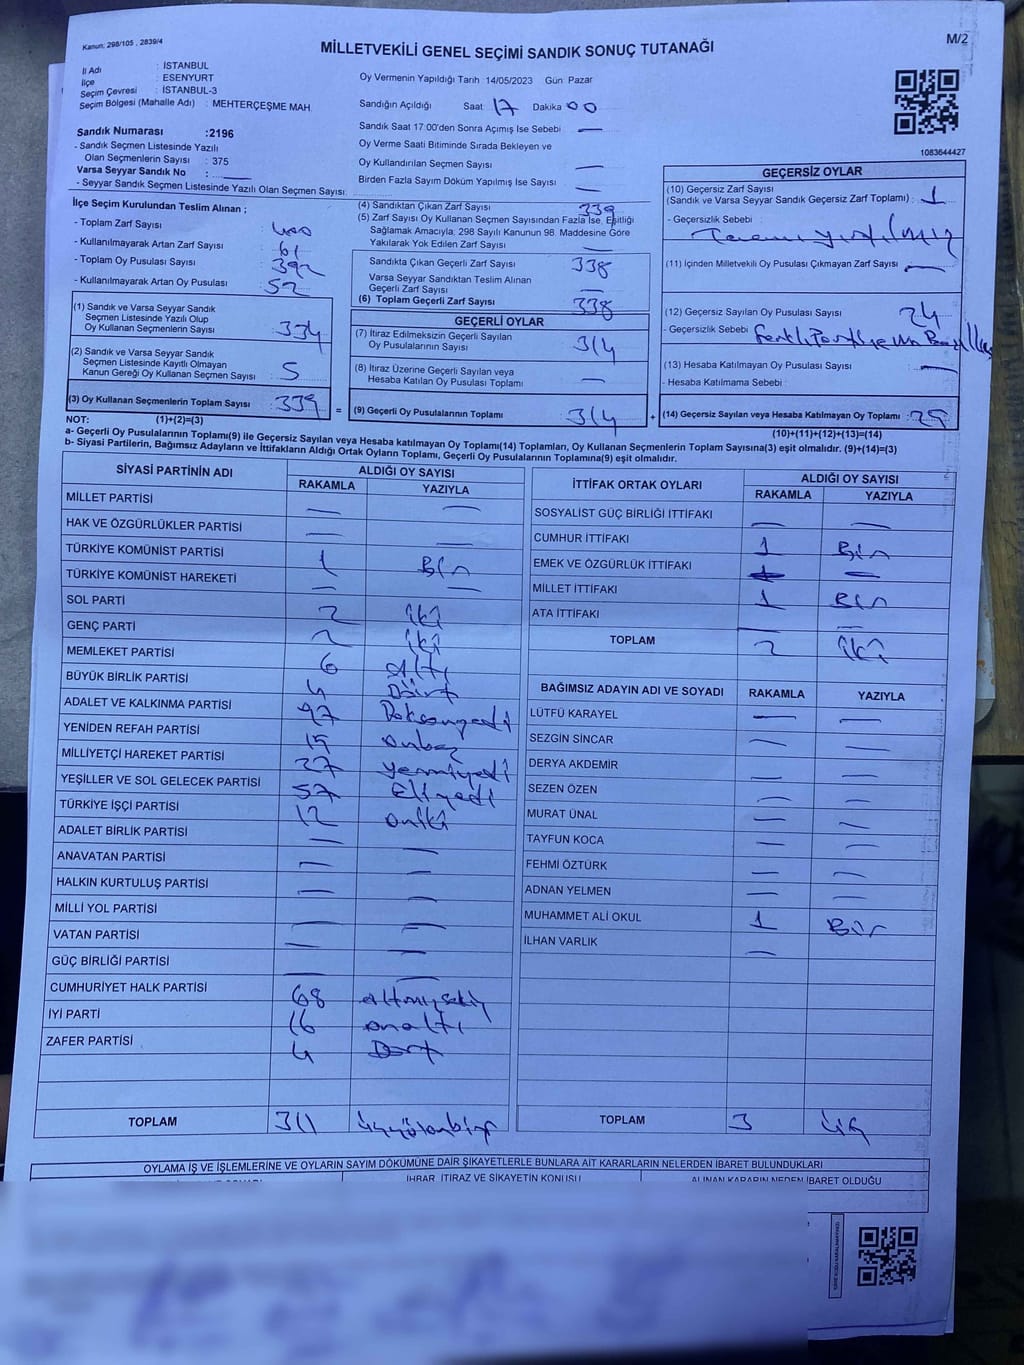 Kanun: 298/105 , 2839/4
M/2
MİLLETVEKİLİ GENEL SEÇİMİ SANDIK SONUÇ TUTANAĞI
İl Adı : İSTANBUL
İlçe : ESENYURT
Seçim Çevresi : İSTANBUL-3
Seçim Bölgesi (Mahalle Adı) : MEHTERÇEŞME MAH.
Sandık Numarası :2196
- Sandık Seçmen Listesinde Yazılı
Olan Seçmenlerin Sayısı : 375
Varsa Seyyar Sandık No : —
- Seyyar Sandık Seçmen Listesinde Yazılı Olan Seçmen Sayısı:
Oy Vermenin Yapıldığı Tarih 14/05/2023 Gün Pazar
Sandığın Açıldığı Saat 17 Dakika 00
Sandık Saat 17:00'den Sonra Açımış İse Sebebi : —
Oy Verme Saati Bitiminde Sırada Bekleyen ve
Oy Kullandırılan Seçmen Sayısı —
Birden Fazla Sayım Döküm Yapılmış İse Sayısı : —
1083644427
İlçe Seçim Kurulundan Teslim Alınan ;
- Toplam Zarf Sayısı : 400
- Kullanılmayarak Artan Zarf Sayısı : 61
- Toplam Oy Pusulası Sayısı : 392
- Kullanılmayarak Artan Oy Pusulası : 52
(1) Sandık ve Varsa Seyyar Sandık
Seçmen Listesinde Yazılı Olup
Oy Kullanan Seçmenlerin Sayısı : 334
(2) Sandık ve Varsa Seyyar Sandık
Seçmen Listesinde Kayıtlı Olmayan
Kanun Gereği Oy Kullanan Seçmen Sayısı : 5
(3) Oy Kullanan Seçmenlerin Toplam Sayısı : 339
(4) Sandıktan Çıkan Zarf Sayısı : 339
(5) Zarf Sayısı Oy Kullanan Seçmen Sayısından Fazla İse, Eşitliği
Sağlamak Amacıyla; 298 Sayılı Kanunun 98. Maddesine Göre
Yakılarak Yok Edilen Zarf Sayısı : —
Sandıkta Çıkan Geçerli Zarf Sayısı : 338
Varsa Seyyar Sandıktan Teslim Alınan
Geçerli Zarf Sayısı : —
(6) Toplam Geçerli Zarf Sayısı : 338
GEÇERLİ OYLAR
(7) İtiraz Edilmeksizin Geçerli Sayılan
Oy Pusulalarının Sayısı : 314
(8) İtiraz Üzerine Geçerli Sayılan veya
Hesaba Katılan Oy Pusulası Toplamı : —
= (9) Geçerli Oy Pusulalarının Toplamı : 314
GEÇERSİZ OYLAR
(10) Geçersiz Zarf Sayısı
(Sandık ve Varsa Seyyar Sandık Geçersiz Zarf Toplamı) : 1
- Geçersizlik Sebebi :
(11) İçinden Milletvekili Oy Pusulası Çıkmayan Zarf Sayısı : —
(12) Geçersiz Sayılan Oy Pusulası Sayısı : 24
- Geçersizlik Sebebi :
(13) Hesaba Katılmayan Oy Pusulası Sayısı : —
- Hesaba Katılmama Sebebi :
+ (14) Geçersiz Sayılan veya Hesaba Katılmayan Oy Toplamı : 25
NOT: (1)+(2)=(3)
(10)+(11)+(12)+(13)=(14)
a- Geçerli Oy Pusulalarının Toplamı(9) ile Geçersiz Sayılan veya Hesaba katılmayan Oy Toplamı(14) Toplamları, Oy Kullanan Seçmenlerin Toplam Sayısına(3) eşit olmalıdır. (9)+(14)=(3)
b- Siyasi Partilerin, Bağımsız Adayların ve İttifakların Aldığı Ortak Oyların Toplamı, Geçerli Oy Pusulalarının Toplamına(9) eşit olmalıdır.
SİYASİ PARTİNİN ADI ALDIĞI OY SAYISI
RAKAMLA YAZIYLA
MİLLET PARTİSİ — —
HAK VE ÖZGÜRLÜKLER PARTİSİ — —
TÜRKİYE KOMÜNİST PARTİSİ 1 Bir
TÜRKİYE KOMÜNİST HAREKETİ — —
SOL PARTİ 2 iki
GENÇ PARTİ 2 iki
MEMLEKET PARTİSİ 6 Altı
BÜYÜK BİRLİK PARTİSİ 4 Dört
ADALET VE KALKINMA PARTİSİ 97 Doksanyedi
YENİDEN REFAH PARTİSİ 15 onbeş
MİLLİYETÇİ HAREKET PARTİSİ 27 yirmiyedi
YEŞİLLER VE SOL GELECEK PARTİSİ 57 Elliyedi
TÜRKİYE İŞÇİ PARTİSİ 12 oniki
ADALET BİRLİK PARTİSİ — —
ANAVATAN PARTİSİ — —
HALKIN KURTULUŞ PARTİSİ — —
MİLLİ YOL PARTİSİ — —
VATAN PARTİSİ — —
GÜÇ BİRLİĞİ PARTİSİ — —
CUMHURİYET HALK PARTİSİ 68 altmışsekiz
İYİ PARTİ 16 onaltı
ZAFER PARTİSİ 4 Dört
TOPLAM 311 üçyüzonbir
İTTİFAK ORTAK OYLARI ALDIĞI OY SAYISI
RAKAMLA YAZIYLA
SOSYALİST GÜÇ BİRLİĞİ İTTİFAKI — —
CUMHUR İTTİFAKI 1 Bir
EMEK VE ÖZGÜRLÜK İTTİFAKI —
MİLLET İTTİFAKI 1 Bir
ATA İTTİFAKI — —
TOPLAM 2 iki
BAĞIMSIZ ADAYIN ADI VE SOYADI RAKAMLA YAZIYLA
LÜTFÜ KARAYEL — —
SEZGİN SİNCAR — —
DERYA AKDEMİR — —
SEZEN ÖZEN — —
MURAT ÜNAL — —
TAYFUN KOCA — —
FEHMİ ÖZTÜRK — —
ADNAN YELMEN — —
MUHAMMET ALİ OKUL 1 Bir
İLHAN VARLIK —
TOPLAM 3 üç
OYLAMA İŞ VE İŞLEMLERİNE VE OYLARIN SAYIM DÖKÜMÜNE DAİR ŞİKAYETLERLE BUNLARA AİT KARARLARIN NELERDEN İBARET BULUNDUKLARI
İHBAR, İTİRAZ VE ŞİKAYETİN KONUSU
ALINAN KARARIN NEDEN İBARET OLDUĞU